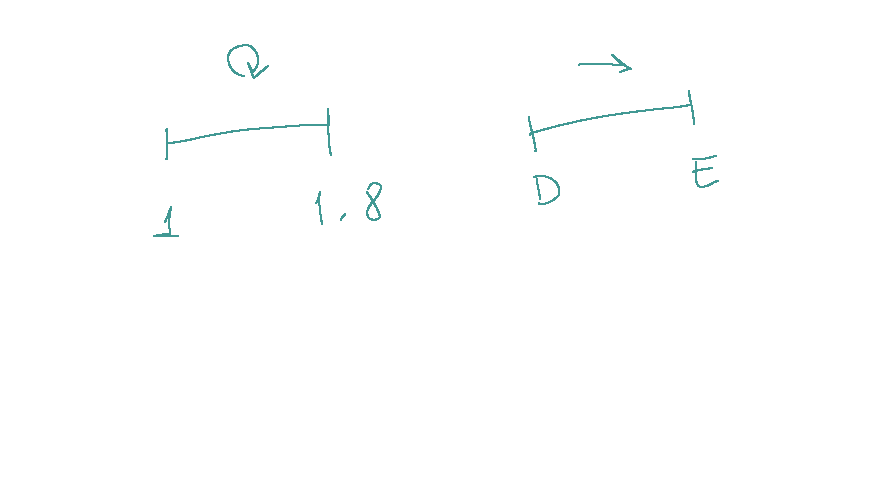 1 1.8 D E